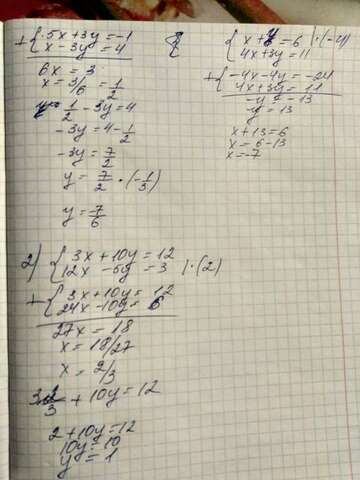 + { 5x+3y=-1
x-3y=4
6x = 3
x = 3/6 = 1/2
1/2 - 3y=4
-3y=4-1/2
-3y= 7/2
y = 7/2 · (-1/3)
y = 7/6
{ x+y=6 |·(-4)
4x+3y=11
+ { -4x-4y=-24
4x+3y=11
-y=-13
y=13
x+13=6
x=6-13
x=-7
2) { 3x+10y=12
12x-5y=3 |·(2)
+ { 3x+10y=12
24x-10y=6
27x = 18
x = 18/27
x = 2/3
3·2/3 + 10y=12
2+10y=12
10y=10
y=1